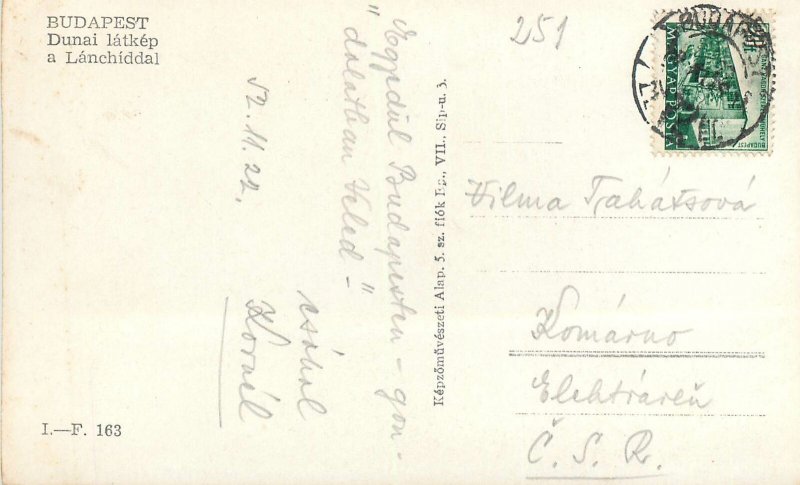 BUDAPEST
Dunai látkép
a Lánchíddal
251
BUDAPEST
MAGYAR POSTA
52. 11. 22.
"Egyedül Budapesten – gon-
dolatban Veled – "
csókol
Kornél
Képzőművészeti Alap. 5. sz. fiók Bp., VII., Sip-u. 3.
Vilma Takátsová
Komárno
Elektráreň
Č. S. R.
I.—F. 163